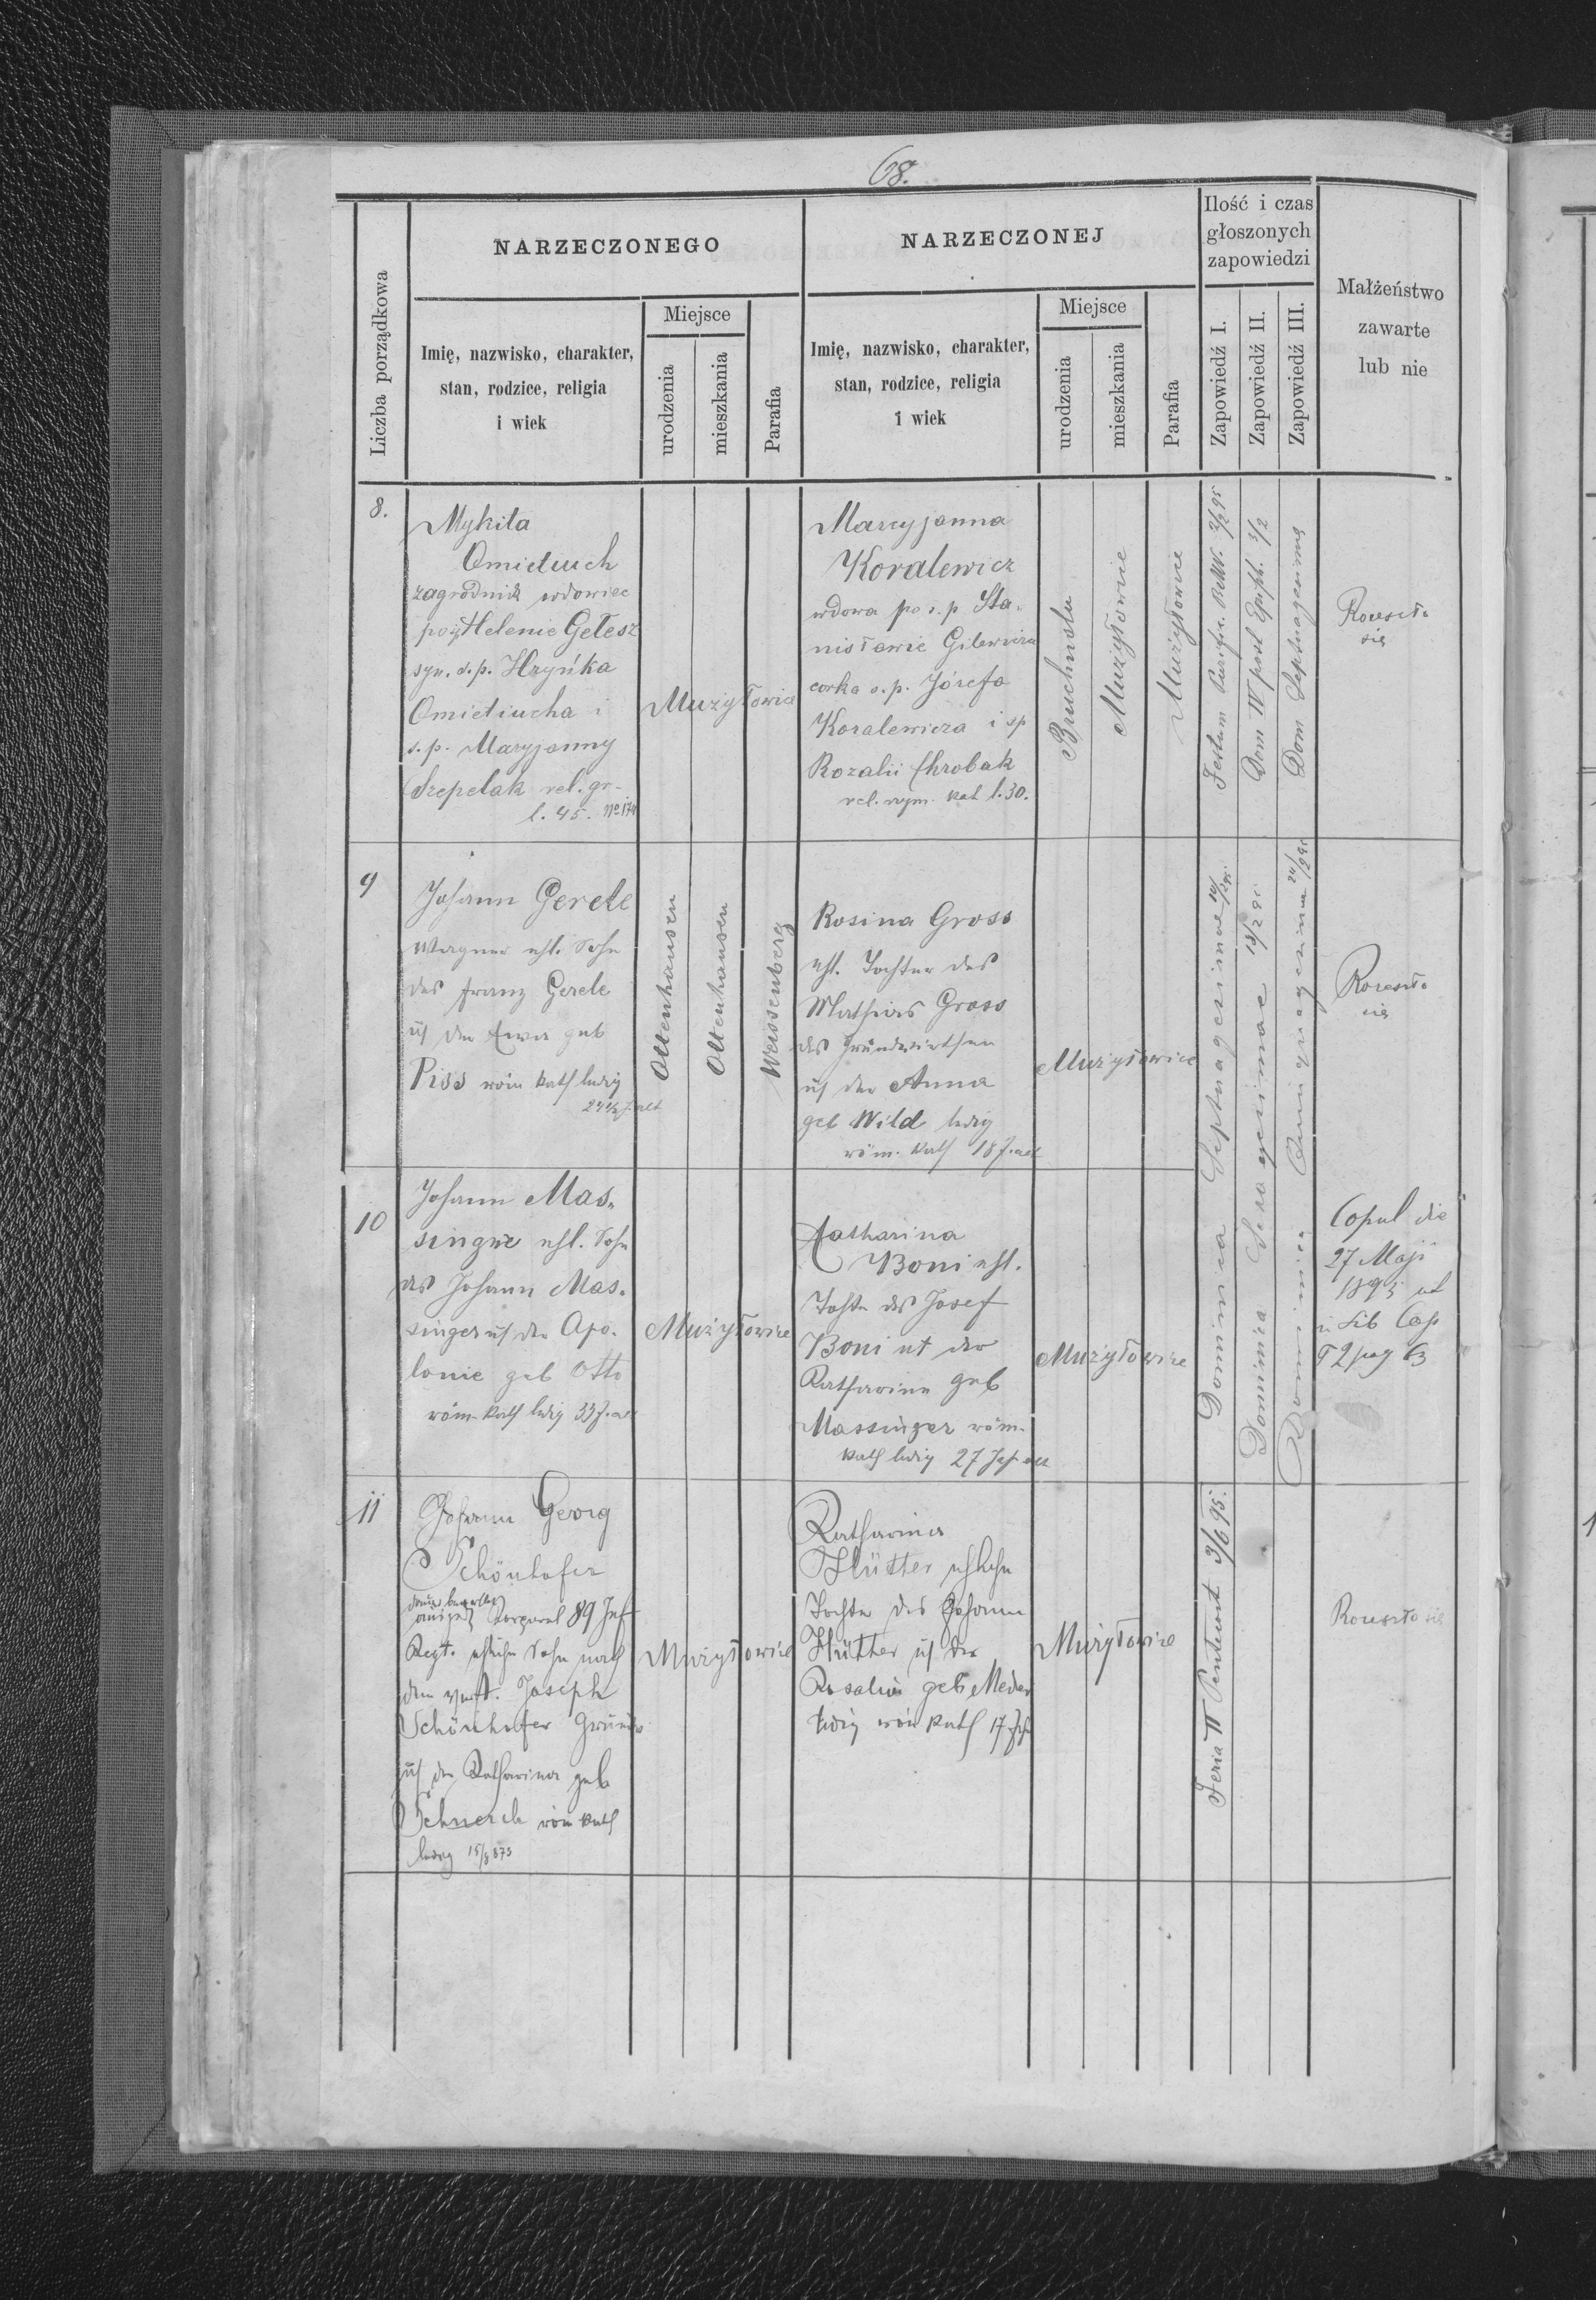 68.
Liczba porządkowa
NARZECZONEGO
Imię, nazwisko, charakter,
stan, rodzice, religia
i wiek
Miejsce
urodzenia
mieszkania
Parafia
NARZECZONEJ
Imię, nazwisko, charakter,
stan, rodzice, religia
i wiek
Miejsce
urodzenia
mieszkania
Parafia
Ilość i czas
głoszonych
zapowiedzi
Zapowiedź I.
Zapowiedź II.
Zapowiedź III.
Małżeństwo
zawarte
lub nie
8.
Mykita
Omietiuch
zagrodnik wdowiec
po Helenie Gełesz
syn ś.p. Hryńka
Omietiucha i
ś.p. Maryjanny
Szepelak rel. gr.
l. 45. No 174
Mużyłowice
Maryjanna
Koralewicz
wdowa po ś.p. Sta-
nisławie Gilewicza
corka ś.p. Józefa
Koralewicza i sp
Rozalii Chrobak
rel. rzym. kat l. 30.
Bruchnalu
Mużyłowice
Mużyłowice
Festum Purifie. BMV. 2/2 95
Dom IV post Epiph. 3/2
Dom Septuagesima
Rozeszło
się
9
Johann Gerele
Wagner ehl. Sohn
des Franz Gerele
u der Ewa geb
Piss röm kath ledig
24 1/2 J. alt
Ottenhausen
Ottenhausen
Weissenberg
Rosina Gross
ehl. Tochter des
Mathias Gross
des Grundwirthen
u der Anna
geb Wild ledig
röm. kath 18 J. alt
Mużyłowice
Dominica Septuagesimae
Dominica Sexagesimae
Dominica Quinquagesima
Rozeszło
się
10
Johann Mas-
singer ehl. Sohn
des Johann Mas-
singer u der Apo-
lonie geb Otto
röm. kath ledig 33 J. alt
Mużyłowice
Katharina
Boni ehl.
Tochter des Josef
Boni ut der
Katharina geb
Massinger röm.
kath ledig 27 Jah alt
Mużyłowice
Copul die
27 Maji
1895 ut
in Lib Cop
T 2 pag 63
11
Johann Georg
Schönhofer
Corporal 89 Inf
Regt. ehliche Sohn nach
dem verst. Joseph
Schönhofer Grundw
u der Katharina geb
röm kath
ledig 15/8 873
Mużyłowice
Katharina
Hütter ehliche
Tochter des Johann
Hütter u der
Rosalia geb Meder
ledig röm kath 17 Jah
Mużyłowice
Feria II Pentecost 3/6 95.
Rozeszło się